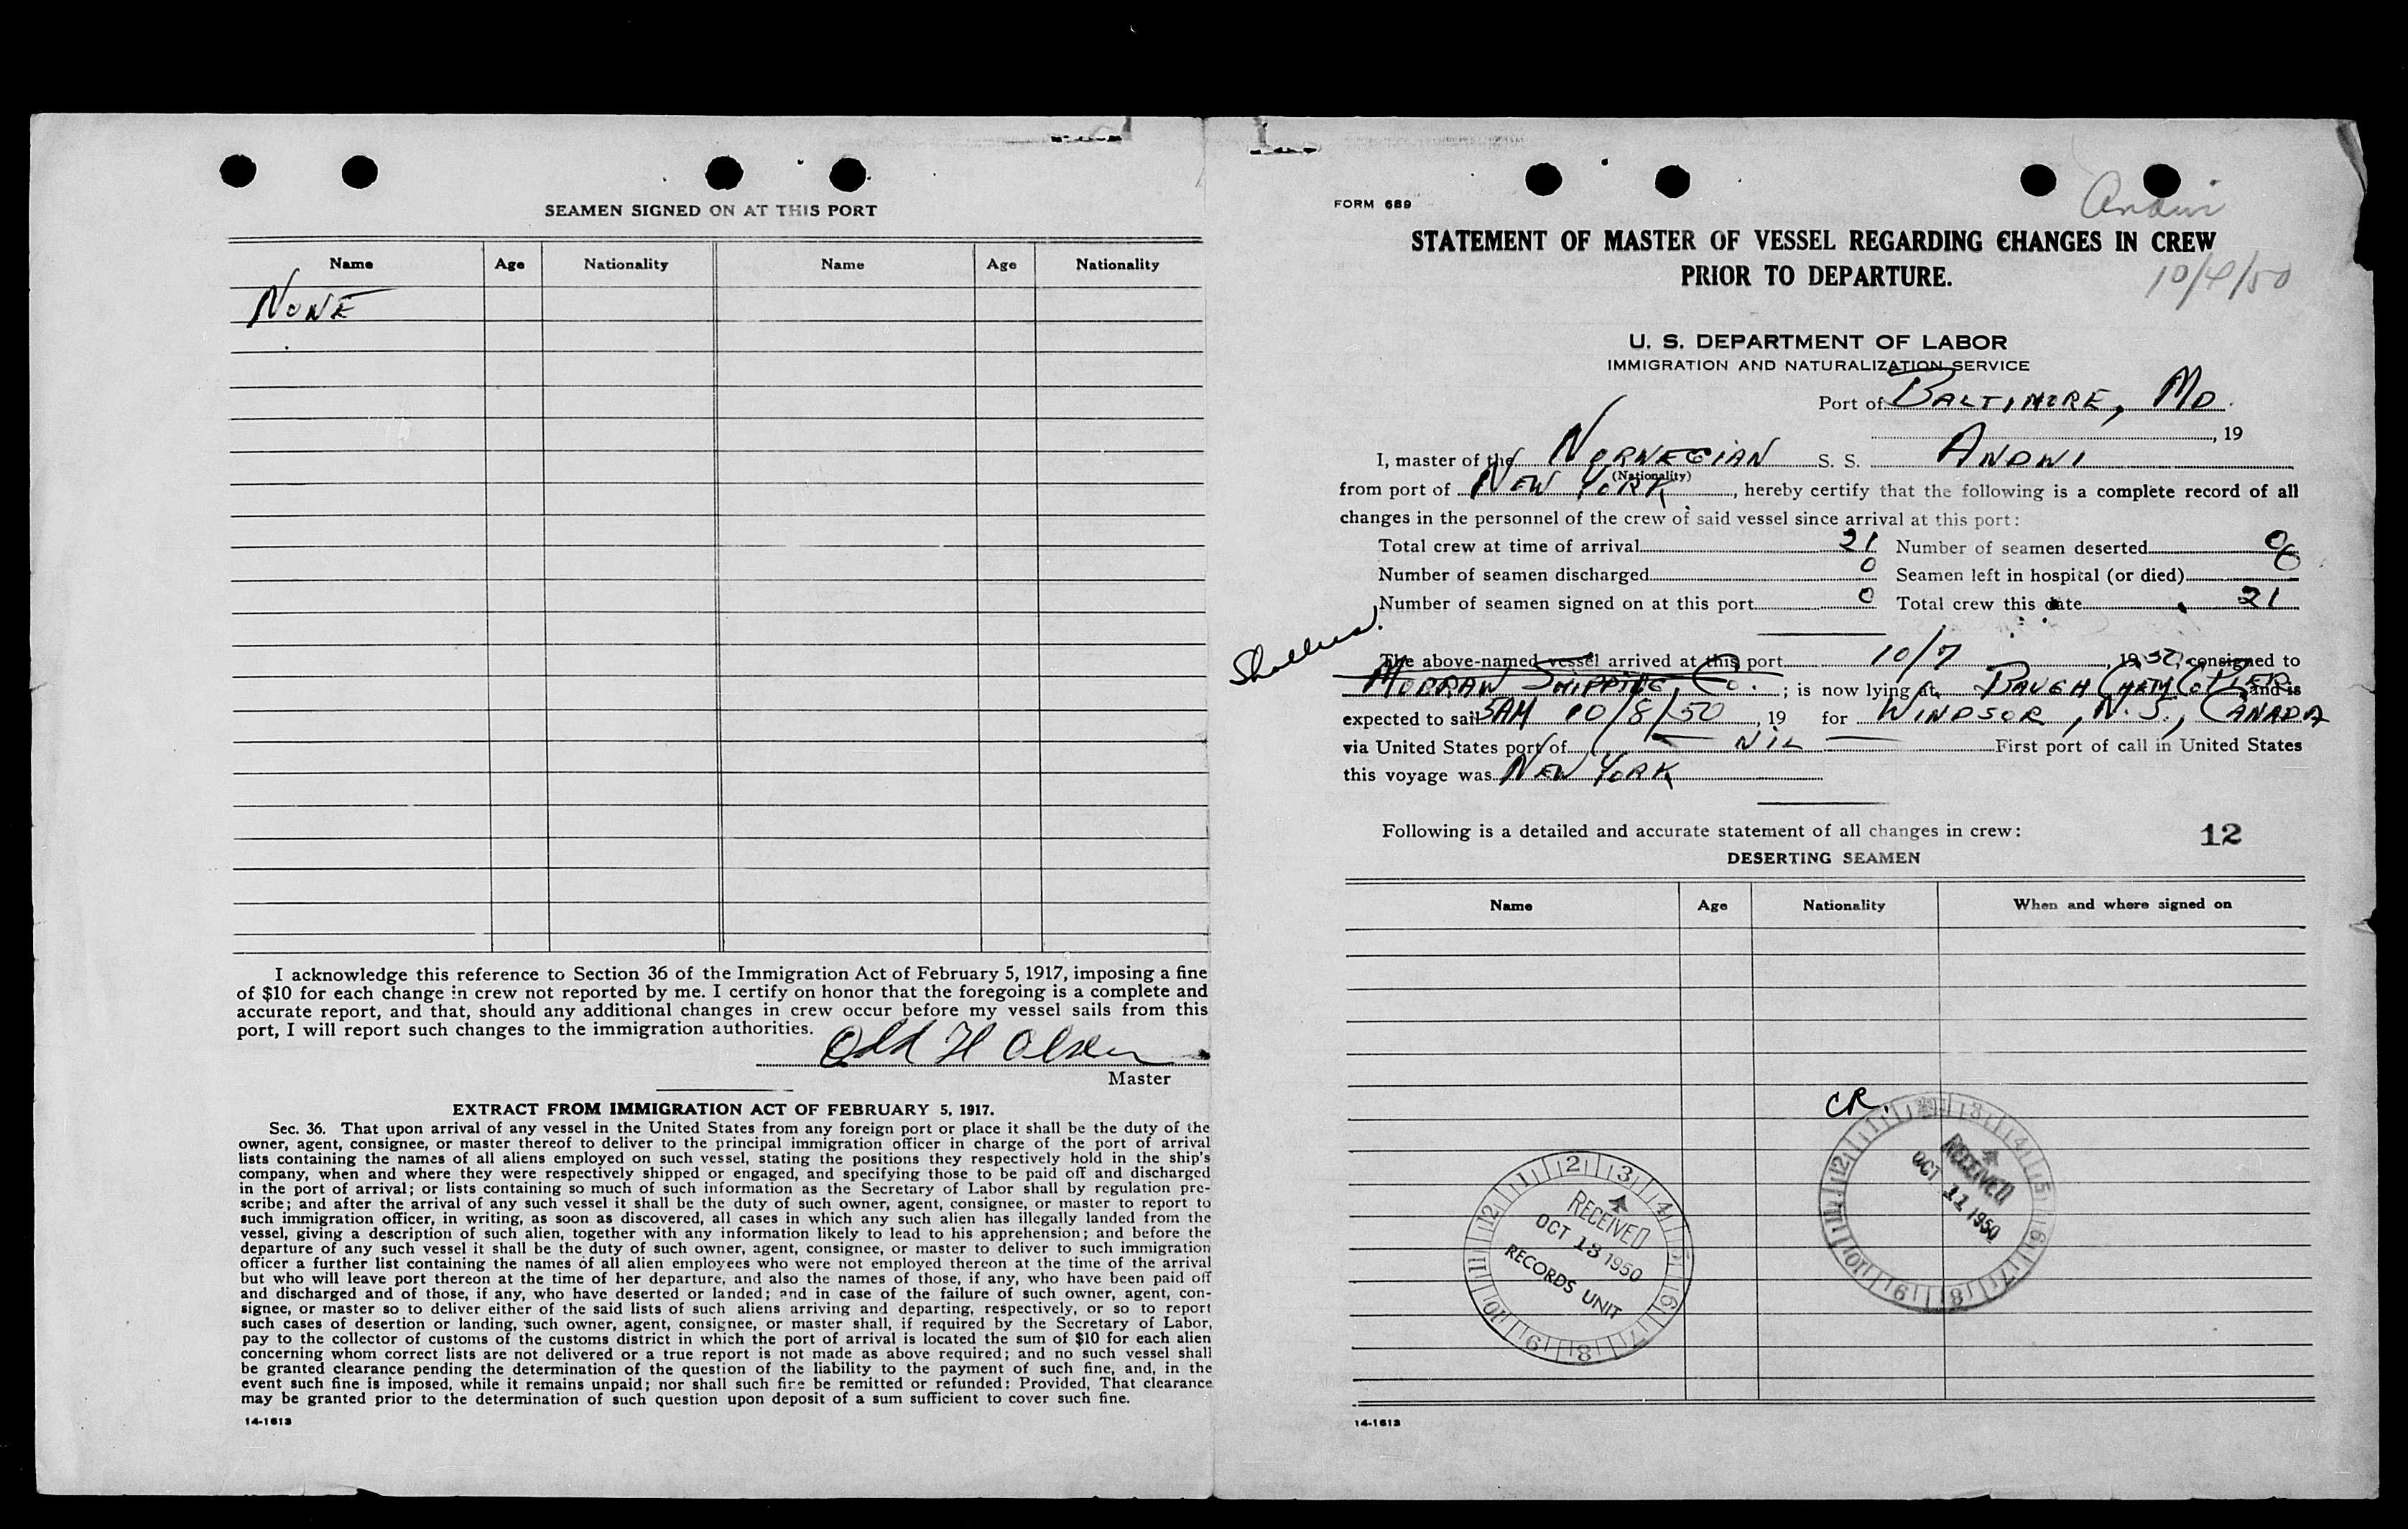 SEAMEN SIGNED ON AT THIS PORT
Name Age Nationality Name Age Nationality
NONE
I acknowledge this reference to Section 36 of the Immigration Act of February 5, 1917, imposing a fine
of $10 for each change in crew not reported by me. I certify on honor that the foregoing is a complete and
accurate report, and that, should any additional changes in crew occur before my vessel sails from this
port, I will report such changes to the immigration authorities.
Odd H Olsen
Master
EXTRACT FROM IMMIGRATION ACT OF FEBRUARY 5, 1917.
Sec. 36. That upon arrival of any vessel in the United States from any foreign port or place it shall be the duty of the
owner, agent, consignee, or master thereof to deliver to the principal immigration officer in charge of the port of arrival
lists containing the names of all aliens employed on such vessel, stating the positions they respectively hold in the ship's
company, when and where they were respectively shipped or engaged, and specifying those to be paid off and discharged
in the port of arrival; or lists containing so much of such information as the Secretary of Labor shall by regulation pre-
scribe; and after the arrival of any such vessel it shall be the duty of such owner, agent, consignee, or master to report to
such immigration officer, in writing, as soon as discovered, all cases in which any such alien has illegally landed from the
vessel, giving a description of such alien, together with any information likely to lead to his apprehension; and before the
departure of any such vessel it shall be the duty of such owner, agent, consignee, or master to deliver to such immigration
officer a further list containing the names of all alien employees who were not employed thereon at the time of the arrival
but who will leave port thereon at the time of her departure, and also the names of those, if any, who have been paid off
and discharged and of those, if any, who have deserted or landed; and in case of the failure of such owner, agent, con-
signee, or master so to deliver either of the said lists of such aliens arriving and departing, respectively, or so to report
such cases of desertion or landing, such owner, agent, consignee, or master shall, if required by the Secretary of Labor,
pay to the collector of customs of the customs district in which the port of arrival is located the sum of $10 for each alien
concerning whom correct lists are not delivered or a true report is not made as above required; and no such vessel shall
be granted clearance pending the determination of the question of the liability to the payment of such fine, and, in the
event such fine is imposed, while it remains unpaid; nor shall such fine be remitted or refunded: Provided, That clearance
may be granted prior to the determination of such question upon deposit of a sum sufficient to cover such fine.
14-1613
FORM 689
Andwi
STATEMENT OF MASTER OF VESSEL REGARDING CHANGES IN CREW
PRIOR TO DEPARTURE.
10/4/50
U. S. DEPARTMENT OF LABOR
IMMIGRATION AND NATURALIZATION SERVICE
Port of BALTIMORE, MD.
, 19
I, master of the NORWEGIAN S. S. ANDWI
(Nationality)
from port of NEW YORK, hereby certify that the following is a complete record of all
changes in the personnel of the crew of said vessel since arrival at this port:
Total crew at time of arrival 21 Number of seamen deserted 0
Number of seamen discharged 0 Seamen left in hospital (or died) 0
Number of seamen signed on at this port 0 Total crew this date 21
The above-named vessel arrived at this port 10/7, 1950, consigned to
SHIPPING CO.; is now lying at BAUGH CHEM CO PIER and is
expected to sail 5AM 10/8/50, 19 for WINDSOR, N.S., CANADA
via United States port of NIL First port of call in United States
this voyage was NEW YORK
Following is a detailed and accurate statement of all changes in crew:
12
DESERTING SEAMEN
Name Age Nationality When and where signed on
CR.
RECEIVED
OCT 11 1950
RECEIVED
OCT 13 1950
RECORDS UNIT
14-1613